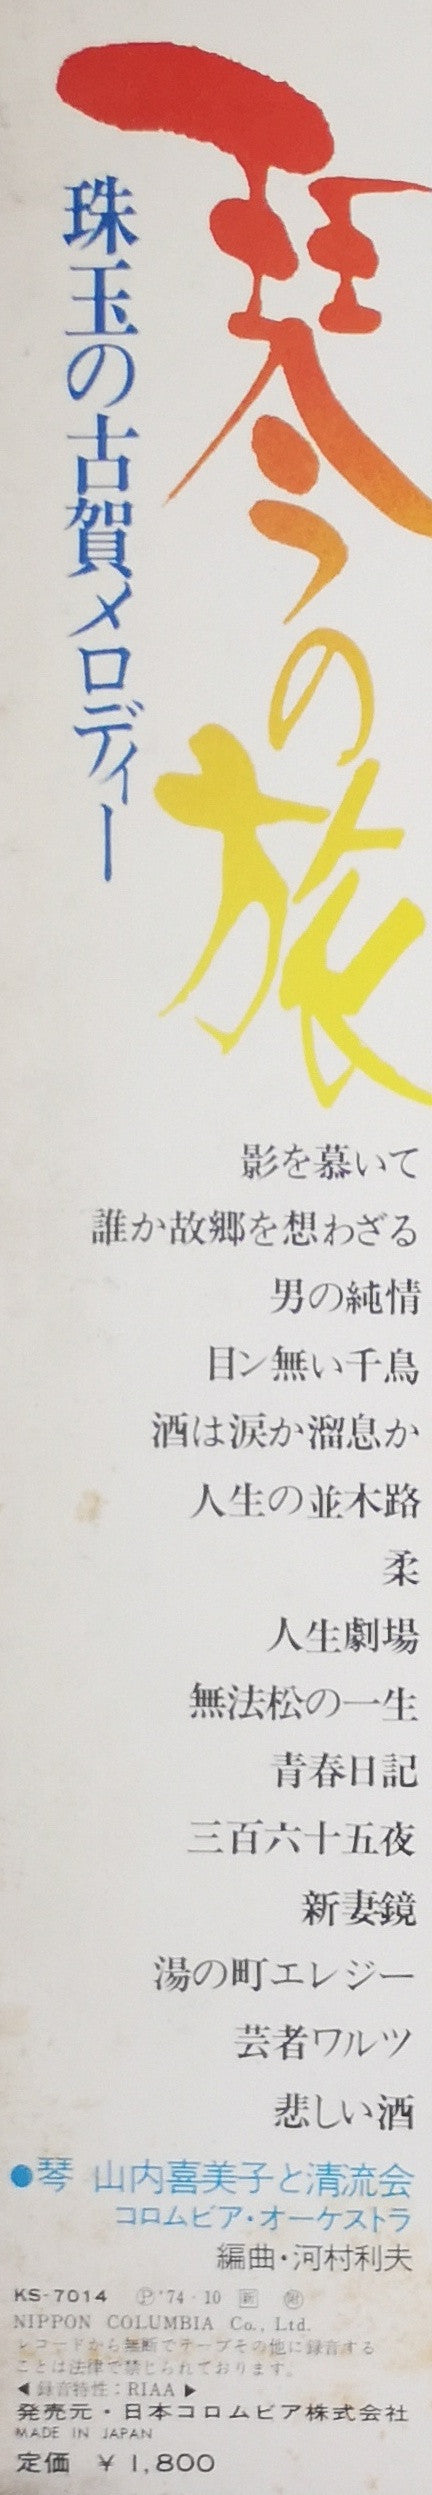 琴の旅
珠玉の古賀メロディー
影を慕いて
誰か故郷を想わざる
男の純情
目ン無い千鳥
酒は涙か溜息か
人生の並木路
柔
人生劇場
無法松の一生
青春日記
三百六十五夜
新妻鏡
湯の町エレジー
芸者ワルツ
悲しい酒
●琴 山内喜美子と清流会
コロムビア・オーケストラ
編曲・河村利夫
KS-7014 Ⓟ'74・10 新
NIPPON COLUMBIA Co., Ltd.
レコードから無断でテープその他に録音する
ことは法律で禁じられております。
◀録音特性:RIAA▶
発売元・日本コロムビア株式会社
MADE IN JAPAN
定価 ¥1,800